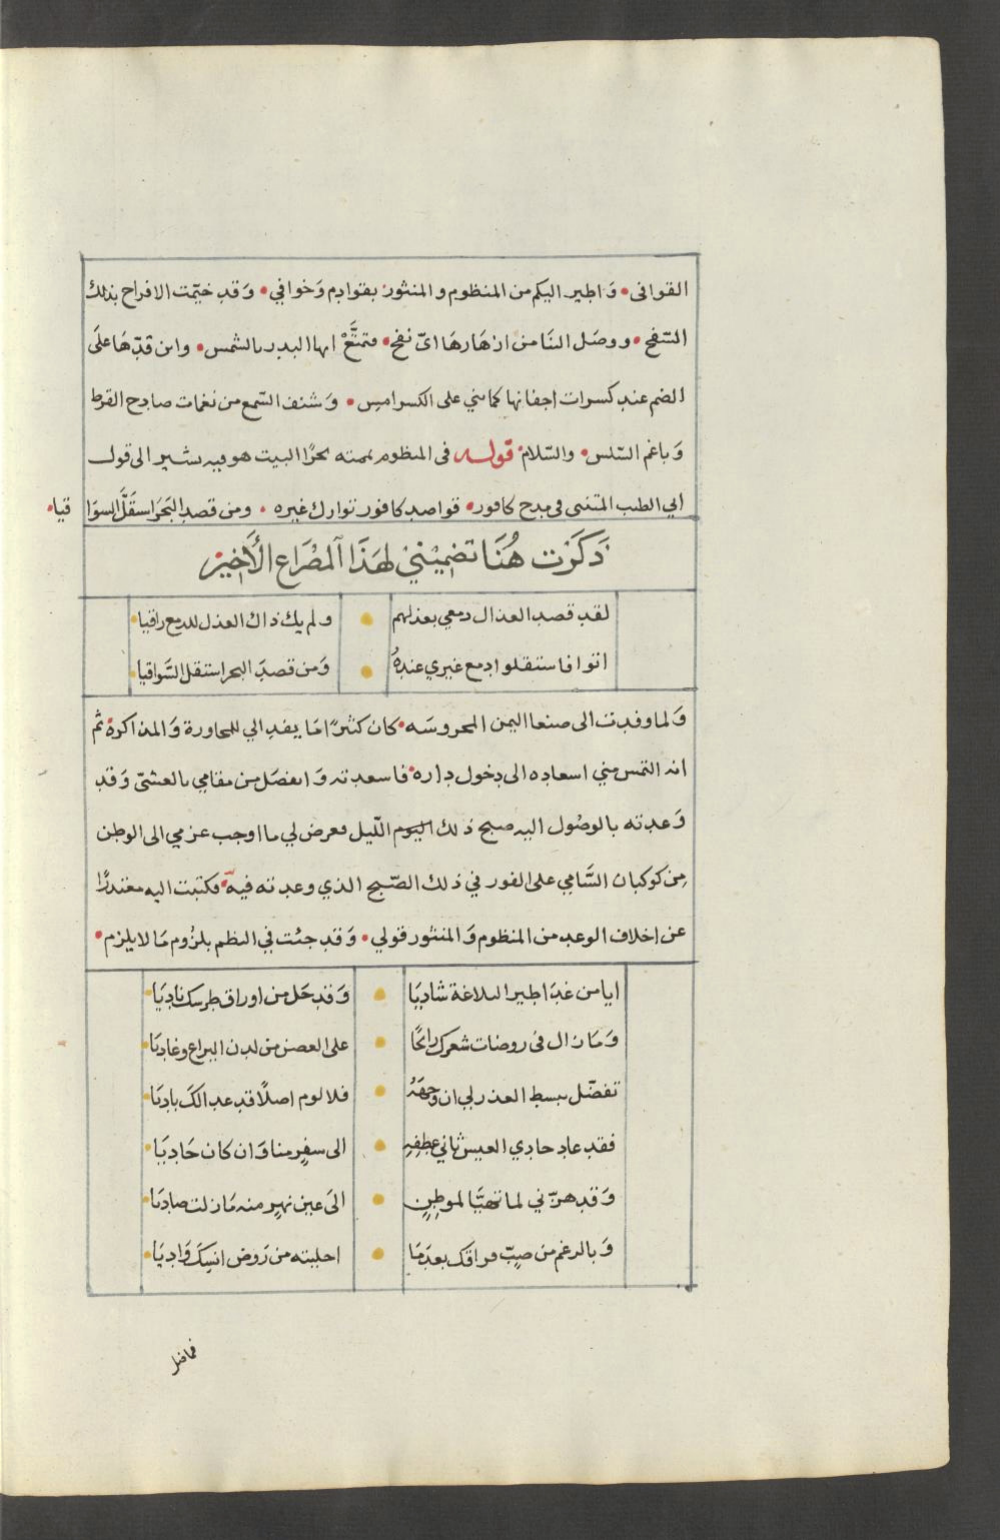 القوافى • وَاطير اليكم من المنظوم والمنثور بقوادم وَخوافي • وَقد ختمت الافراح بذلك
السّفح • ووصَل النَا من ازهَارهَا اىّ نفح • فتمتَّعْ ايها البدر بالشمس • وابن قدّهَا علَى
الضم عند كسرات اجفانها كما بني على الكسر امس • وَشنف السّمع من نغمات صادح القرط
وَباغم السّلس • والسّلام • قوله فى المنظوم يممته بحرًا البيت هو فيه يشير الى قول
ابي الطيب المتنبى فى مدح كافور • قواصد كافور توارك غيره • ومن قصد البَحرَ استقلَّ السوا قيا •
ذَكَرْت هُنَا تضمِيْنِي لهَذَا آلمصْرَاع الأَخِيْر
لقد قصد العذال دمعي بعذلهم • ولم يك ذاك العذل للدمع راقيا •
اتوا فاستقلوا دمع غيري عندهُ • وَمن قصدَ البحر استقل السَّواقيا •
وَلما وفدت الى صنعا اليمن المحروسَه • كان كثيرًا مَا يفد الي للمحاورة وَالمذاكرة • ثم
انه التمس مني اسعاده الى دخول داره • فاسعدته وَانفصَل من مقامي بالعشيّ وَقد
وَعدته بالوصُول اليه صبح ذلك اليوم الّيل فعرض لي ما اوجب عزمي الى الوطن
مِن كوكبان السَّامي على الفور في ذلك الصّبح الذي وعدته فيه • فكتبت اليه معتذرًا
عن اخلاف الوعد من المنظوم وَالمنثور قولي • وَقد جئت في النظم بلزُوم مَا لا يلزم •
ايا من غدَا طير البلاغة شاديَا • وَقد حَل من اوراق طرسك ناديَا •
وَمَا زال فى روضات شعرك رائحًا • على الغصن من لدن اليراع وغاديَا •
تفضّل ببسط العذر لي ان وجهَهُ • فلا لوم اصلًا قد غدا لكَ باديَا •
فقد عاد حادي العيس ثاني عطفِهِ • الى سفرٍ منا وَان كان حَاديَا •
وَقد هزّني لما تهيَّا لموطِنٍ • الىَ عين نهرٍ منه مَا زلت صاديَا •
وَبالرغم من صبّ فراقك بعدَمَا • احليته من رَوض انسِكَ وَاديَا •
فما ضل